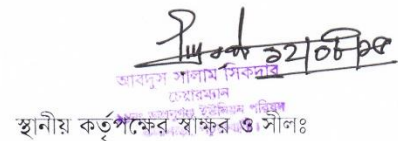 ১২/০৮/১৫
আবদুস সালাম সিকদার
চেয়ারম্যান
ইউনিয়ন পরিষদ
স্থানীয় কর্তৃপক্ষের স্বাক্ষর ও সীলঃ